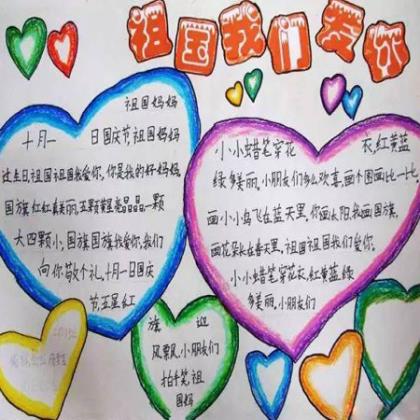 祖国我们爱你
祖国妈妈
十月一 日国庆节,祖国妈妈
过生日,祖国祖国我爱你,你是我的好妈妈
国旗红红真美丽,五颗星星亮晶晶,一颗
大四颗小,国旗国旗我爱你,我们
向你敬个礼,十月一日国庆
节,五星红
旗 迎
风飘,小朋友们
拍手笑,祖
国妈
小小蜡笔穿花 衣,红黄蓝
绿多美丽,小朋友们多么欢喜,画个图画比一比,
画小小鸟飞在蓝天里,你画太阳,我画国旗,
画花朵长在春天里,祖国祖国我们爱你,
小小蜡笔穿花衣,红黄蓝绿
多美丽,小朋友们